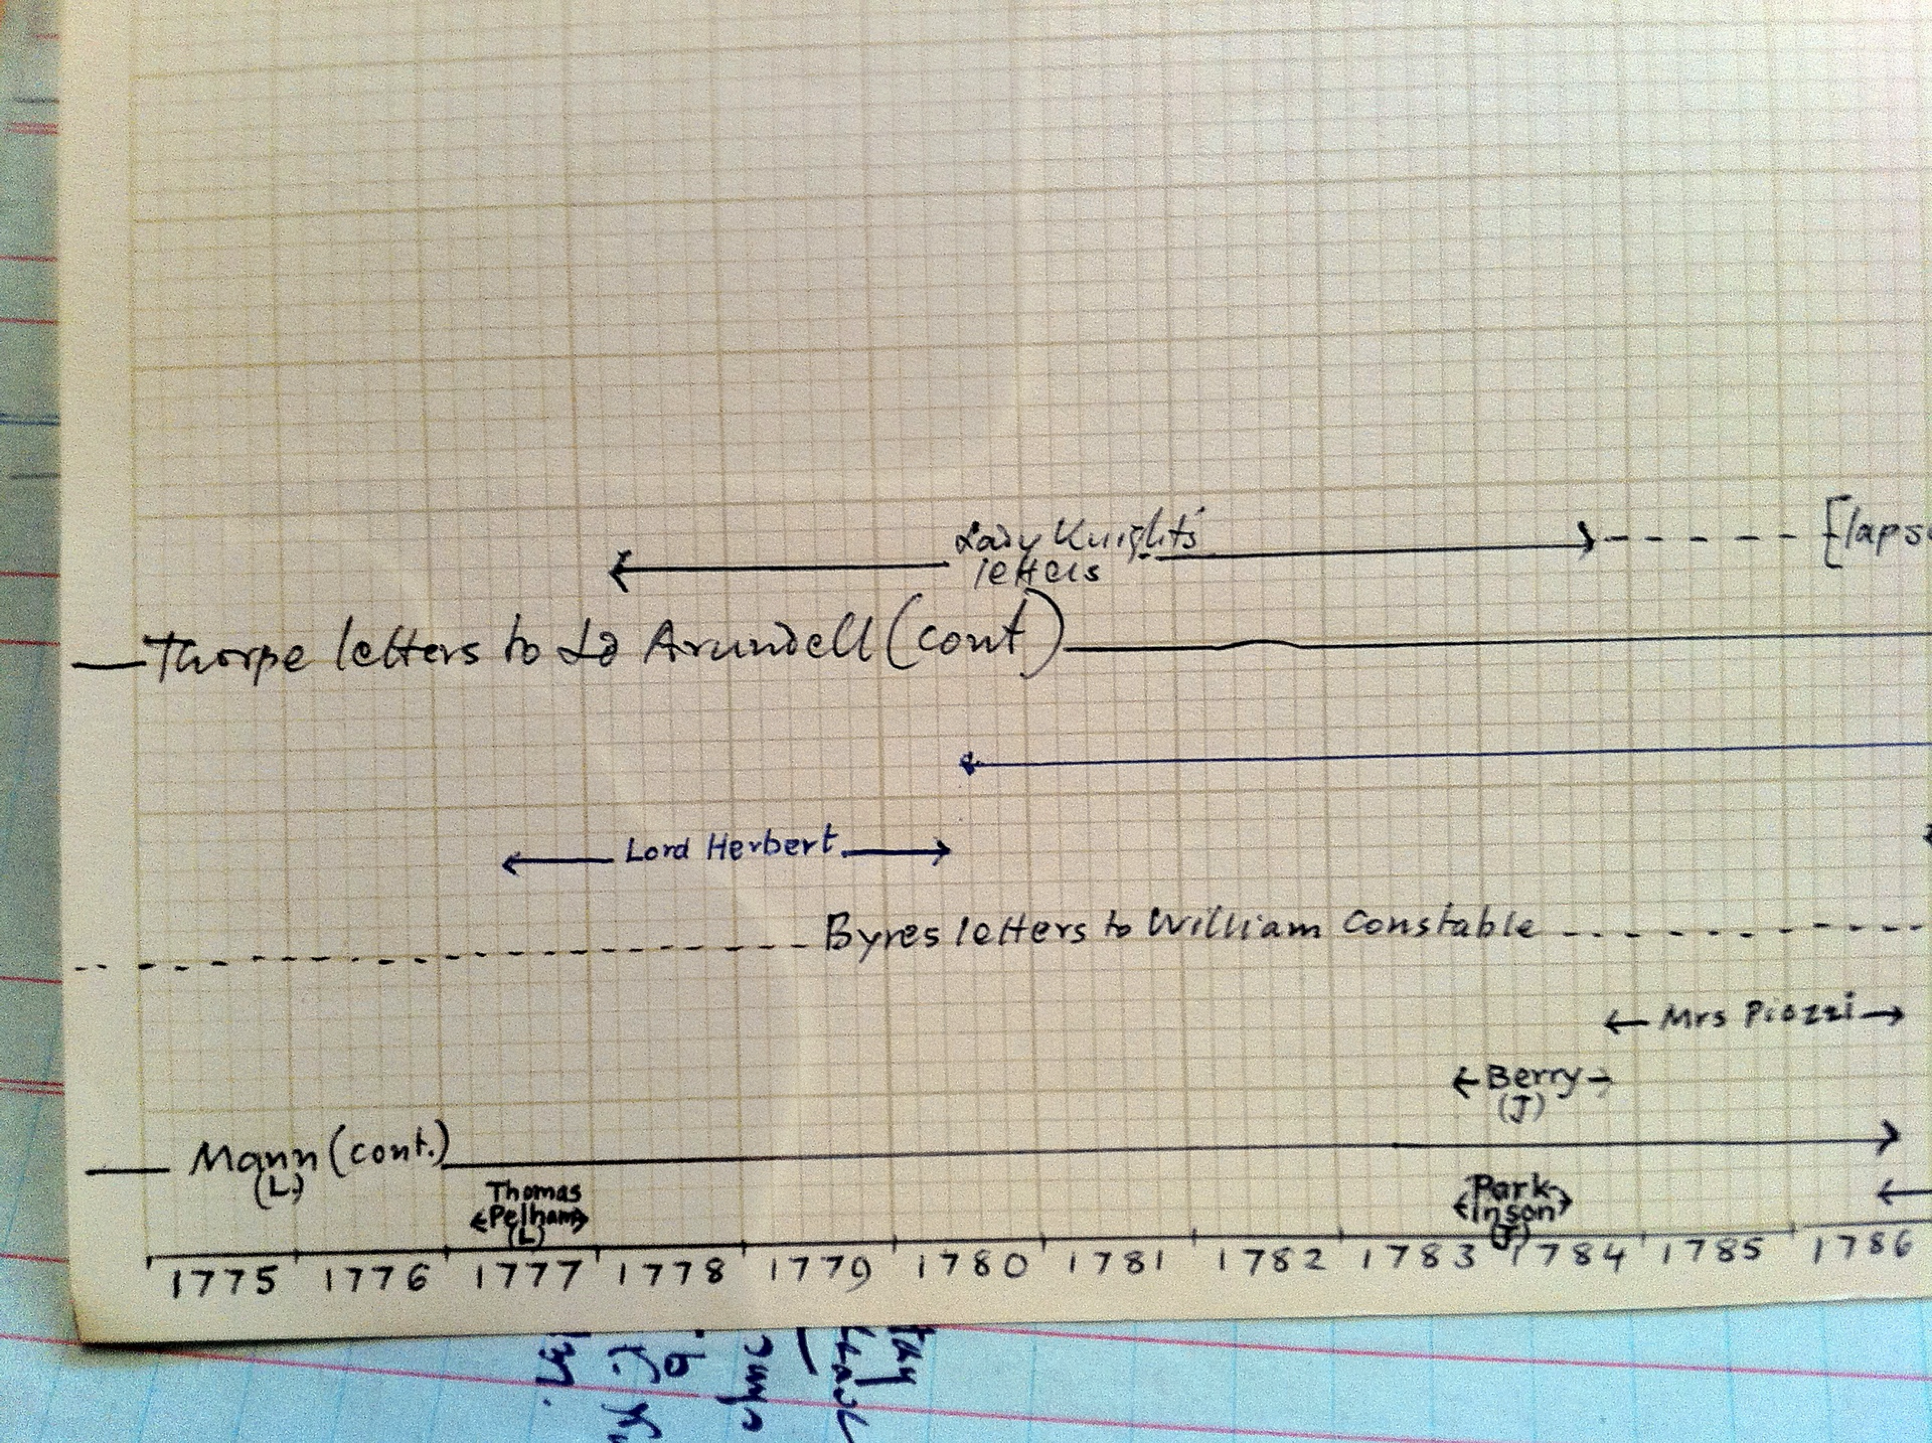 Lady Knight's
letters
[laps
Thorpe letters to Ld Arundell (cont)
Lord Herbert
Byres letters to William Constable
Mrs Piozzi
Berry
(J)
Mann (cont.)
(L)
Thomas
Pelham
(L)
Park-
inson
(J)
1775 1776 1777 1778 1779 1780 1781 1782 1783 1784 1785 1786